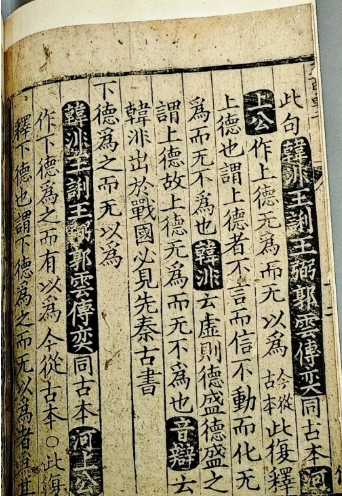 此句韓非王誗王弼郭雲傅奕同古本河
上公作上德无爲而无以爲今從古本此復釋
上德也謂上德者不言而信不動而化无
爲而无不爲也韓非云虛則德盛德盛之
謂上德故上德无爲而无不爲也音辯云
韓非出於戰國必見先秦古書
下德爲之而无以爲
韓非王誗王弼郭雲傅奕同古本河上公
作下德爲之而有以爲今從古本○此復
釋下德也謂下德爲之而无以爲者